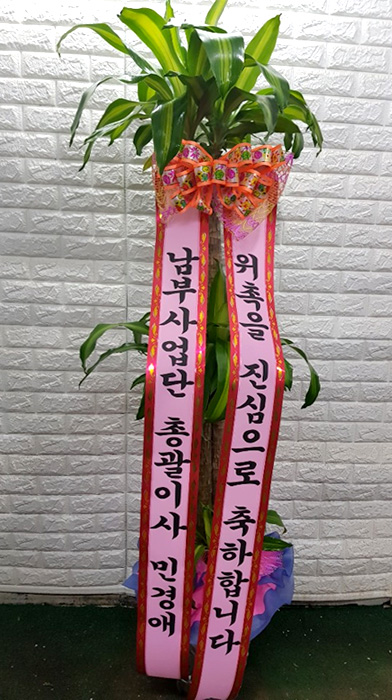 위촉을 진심으로 축하합니다
남부사업단 총괄이사 민경애